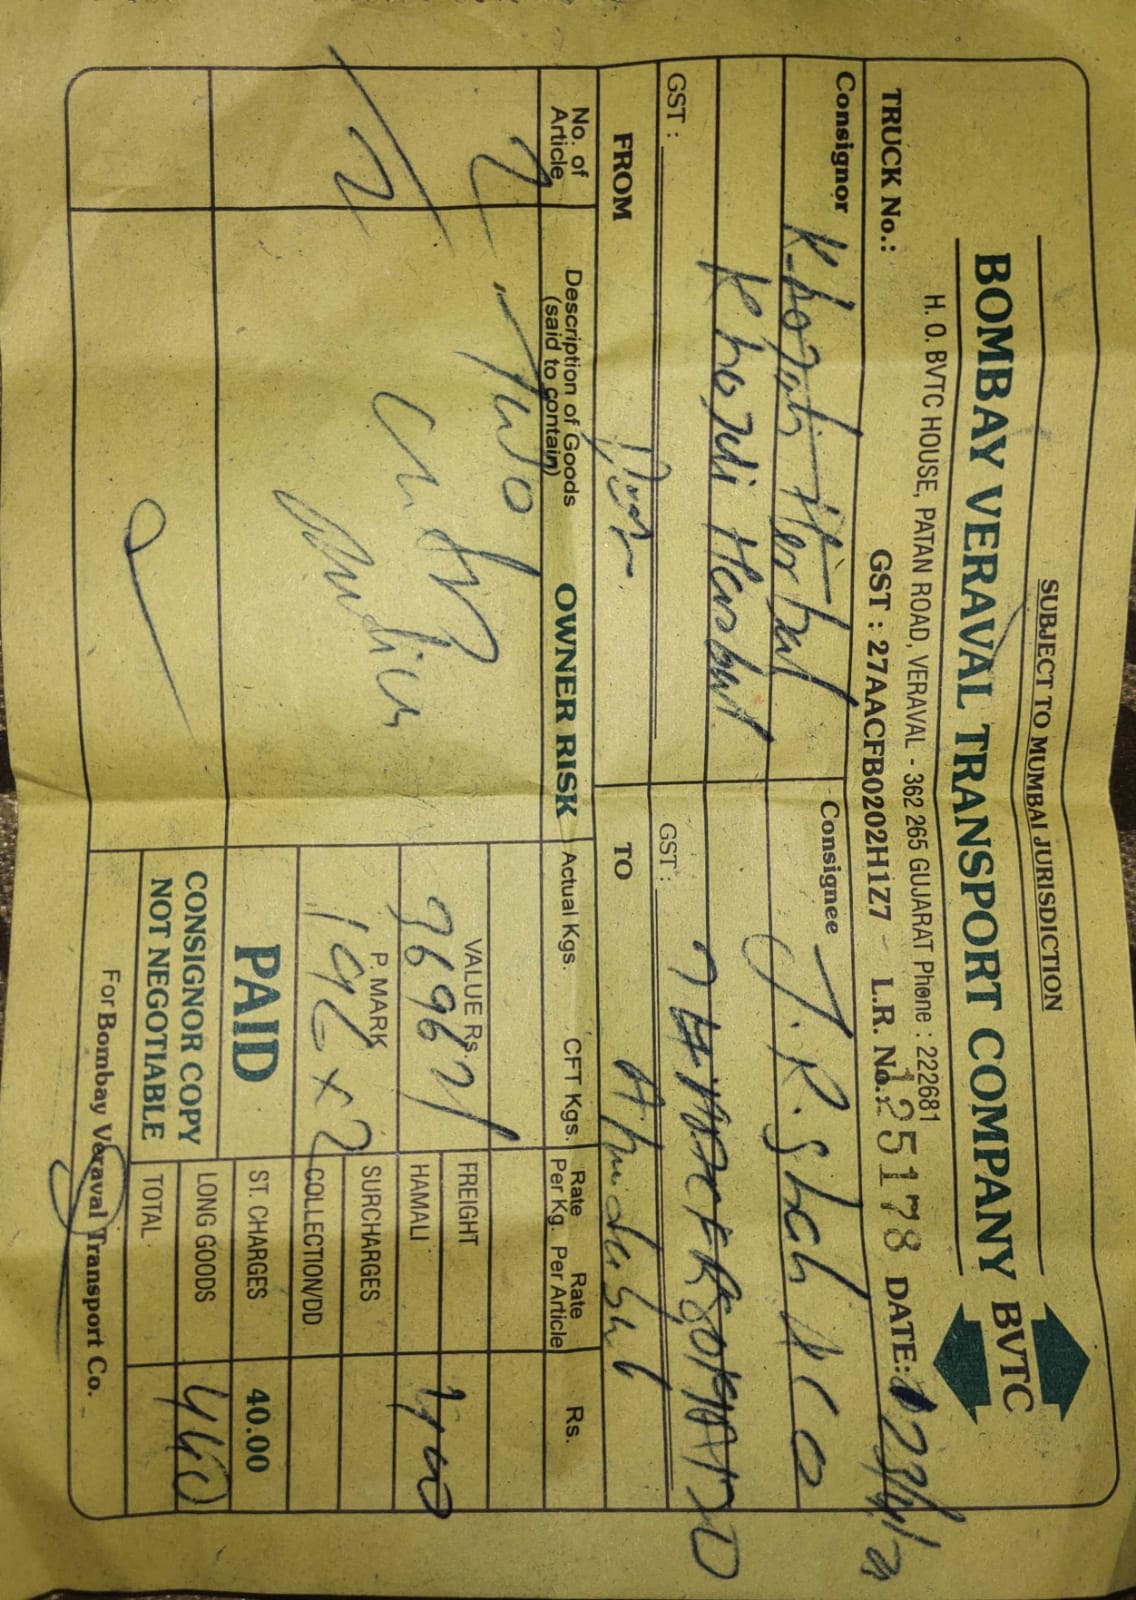 SUBJECT TO MUMBAI JURISDICTION
BOMBAY VERAVAL TRANSPORT COMPANY BVTC
H. O. BVTC HOUSE, PATAN ROAD, VERAVAL - 362 265 GUJARAT Phone : 222681
TRUCK No.: GST : 27AACFB0202H1Z7 L.R. No.: 125178 DATE:
Consignor Khodal Herbal Consignee J. R. Shah & Co
Khodal Herbal
GST : GST :
FROM TO
No. of Article Description of Goods (said to contain) OWNER RISK Actual Kgs. CFT Kgs. Rate Per Kg. Rate Per Article Rs.
2 Two
VALUE Rs. FREIGHT 400
HAMALI
P. MARK SURCHARGES
2 196 x 2 COLLECTION/DD
PAID ST. CHARGES 40.00
CONSIGNOR COPY LONG GOODS 440
NOT NEGOTIABLE TOTAL
For Bombay Veraval Transport Co.